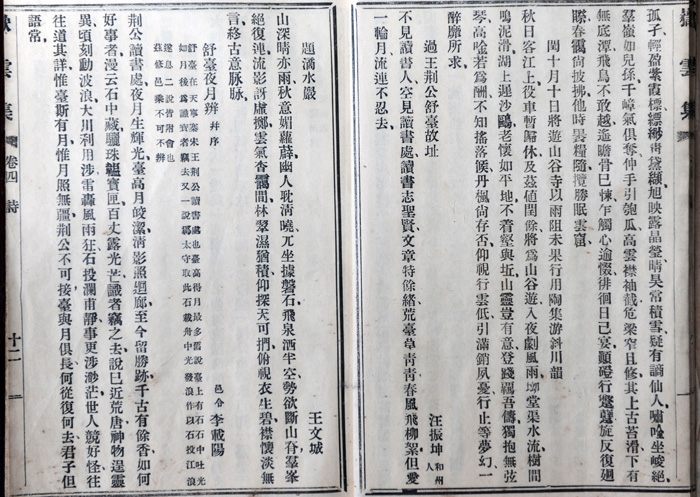 雲集
孤子輕盈紫霞標縹緲靑黛纈旭映露晶瑩晴昊常積雪疑有謫仙人嘯嗆坐峻絕
羣嶺如兒孫千嶂氣俱奪伸手引匏瓜高雲襟袖截危梁窄且修其上古苔滑下有
無底潭飛鳥不敢越遙瞻骨已悚乍觸心逾惙徘徊日已宴顛磴行蹩躠旋反復迴
春靄尙披拂他時裹糧隨攬勝眠雲窟
閏十月十日將遊山谷寺以雨阻未果行用陶集游斜川韻
秋日客江上役車暫歸休及茲値閏餘將爲山谷遊入夜劇風雨坳堂渠水流樹間
鳴泥滑湖上遲沙鷗老懷如平地不着壑與坵山靈豈有意登踐羈吾儔獨抱無弦
琴高唫若爲酬不知搖落候丹楓尙存否仰視行雲低引滿銷夙憂行止等夢幻一
醉靡所求
過王荆公舒臺故址 汪振坤 和州人
不見讀書人空見讀書處讀書志聖賢文章特餘緒荒臺草靑靑春風飛柳絮但愛
一輪月流連不忍去
題滴水巖 王文城
山深晴亦雨秋意媚蘿薜幽人耽淸曉兀坐據磐石飛泉洒半空勢欲斷山脊羣峯
絕復連流影訝虛擲雲氣杳靄間林翠濕猶積仰探天可捫俯視衣生碧襟懷淡無
言終古意脉脉
舒臺夜月辨 幷序 邑令 李載陽
舒臺在天寧寨宋王荆公讀書處也臺高得月最多舊說臺上有石石中吐光
如月後爲識寶者竊去又一說爲太守取此石載舟中光發浪作以石投江浪
遂息二說皆附會也
茲修邑乘不可不辨
荆公讀書處夜月生輝光臺高月皎潔淸影照迴廊至今留勝跡千古有餘香如何
好事者漫云石中藏驪珠韞寶匣百丈露光芒識者竊之去說已近荒唐神物逞靈
異頃刻動波浪大川利用涉雷轟風雨狂石投瀾甫靜事更渉渺茫世人競好怪往
往道其詳惟臺斯有月惟月照無疆荆公不可接臺與月俱長何從復何去君子但
語常
雲集 卷四 詩 十二